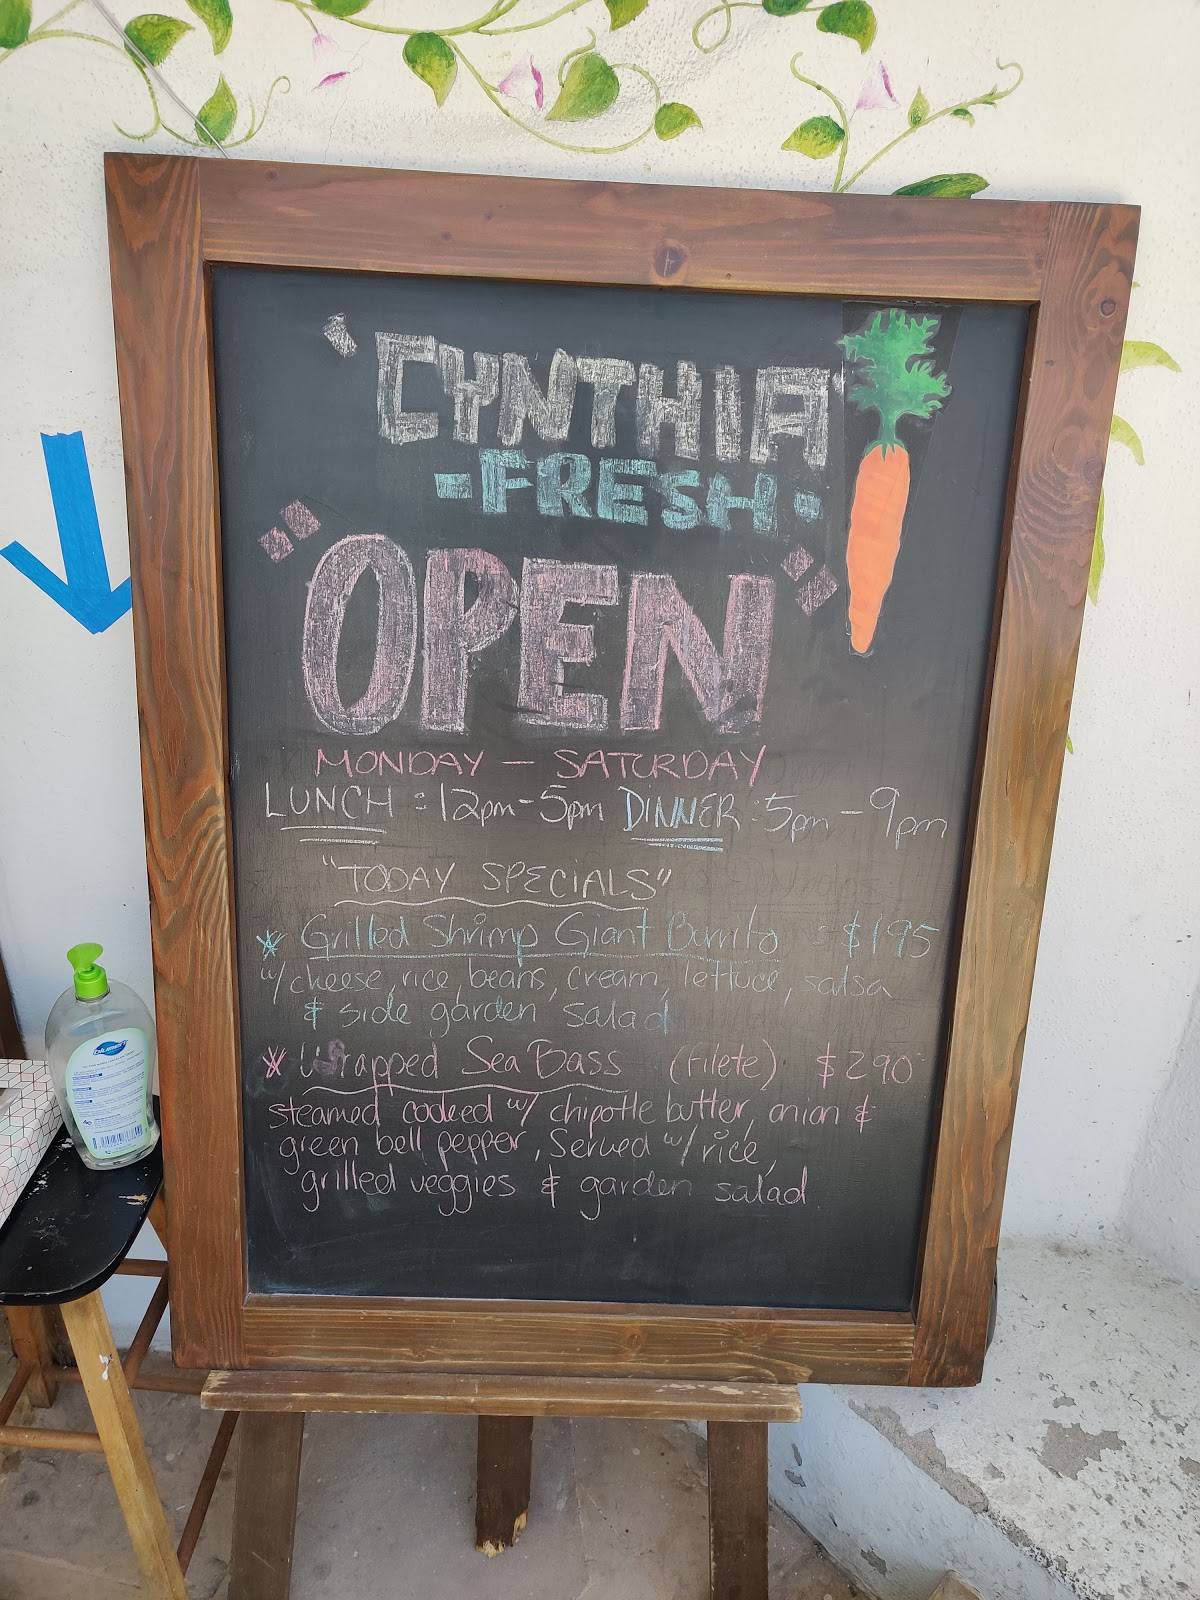 'CYNTHIA'
-FRESH-
"OPEN"
MONDAY - SATURDAY
LUNCH : 12pm-5pm DINNER : 5pm-9pm
"TODAY SPECIALS"
* Grilled Shrimp Giant Burrito : $195
w/ cheese, rice, beans, cream, lettuce, salsa
& side garden salad
* Wrapped Sea Bass (Filete) $290
steamed cooked w/ chipotle butter, onion &
green bell pepper, Served w/ rice,
grilled veggies & garden salad